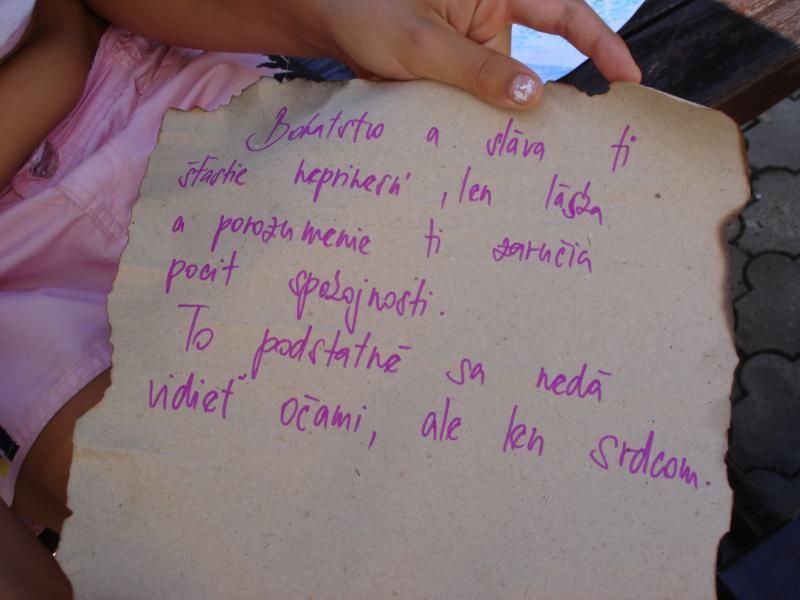 Bohatstvo a sláva ti
šťastie neprinesú, len láska
a porozumenie ti zaručia
pocit spokojnosti.
To podstatné sa nedá
vidieť očami, ale len srdcom.